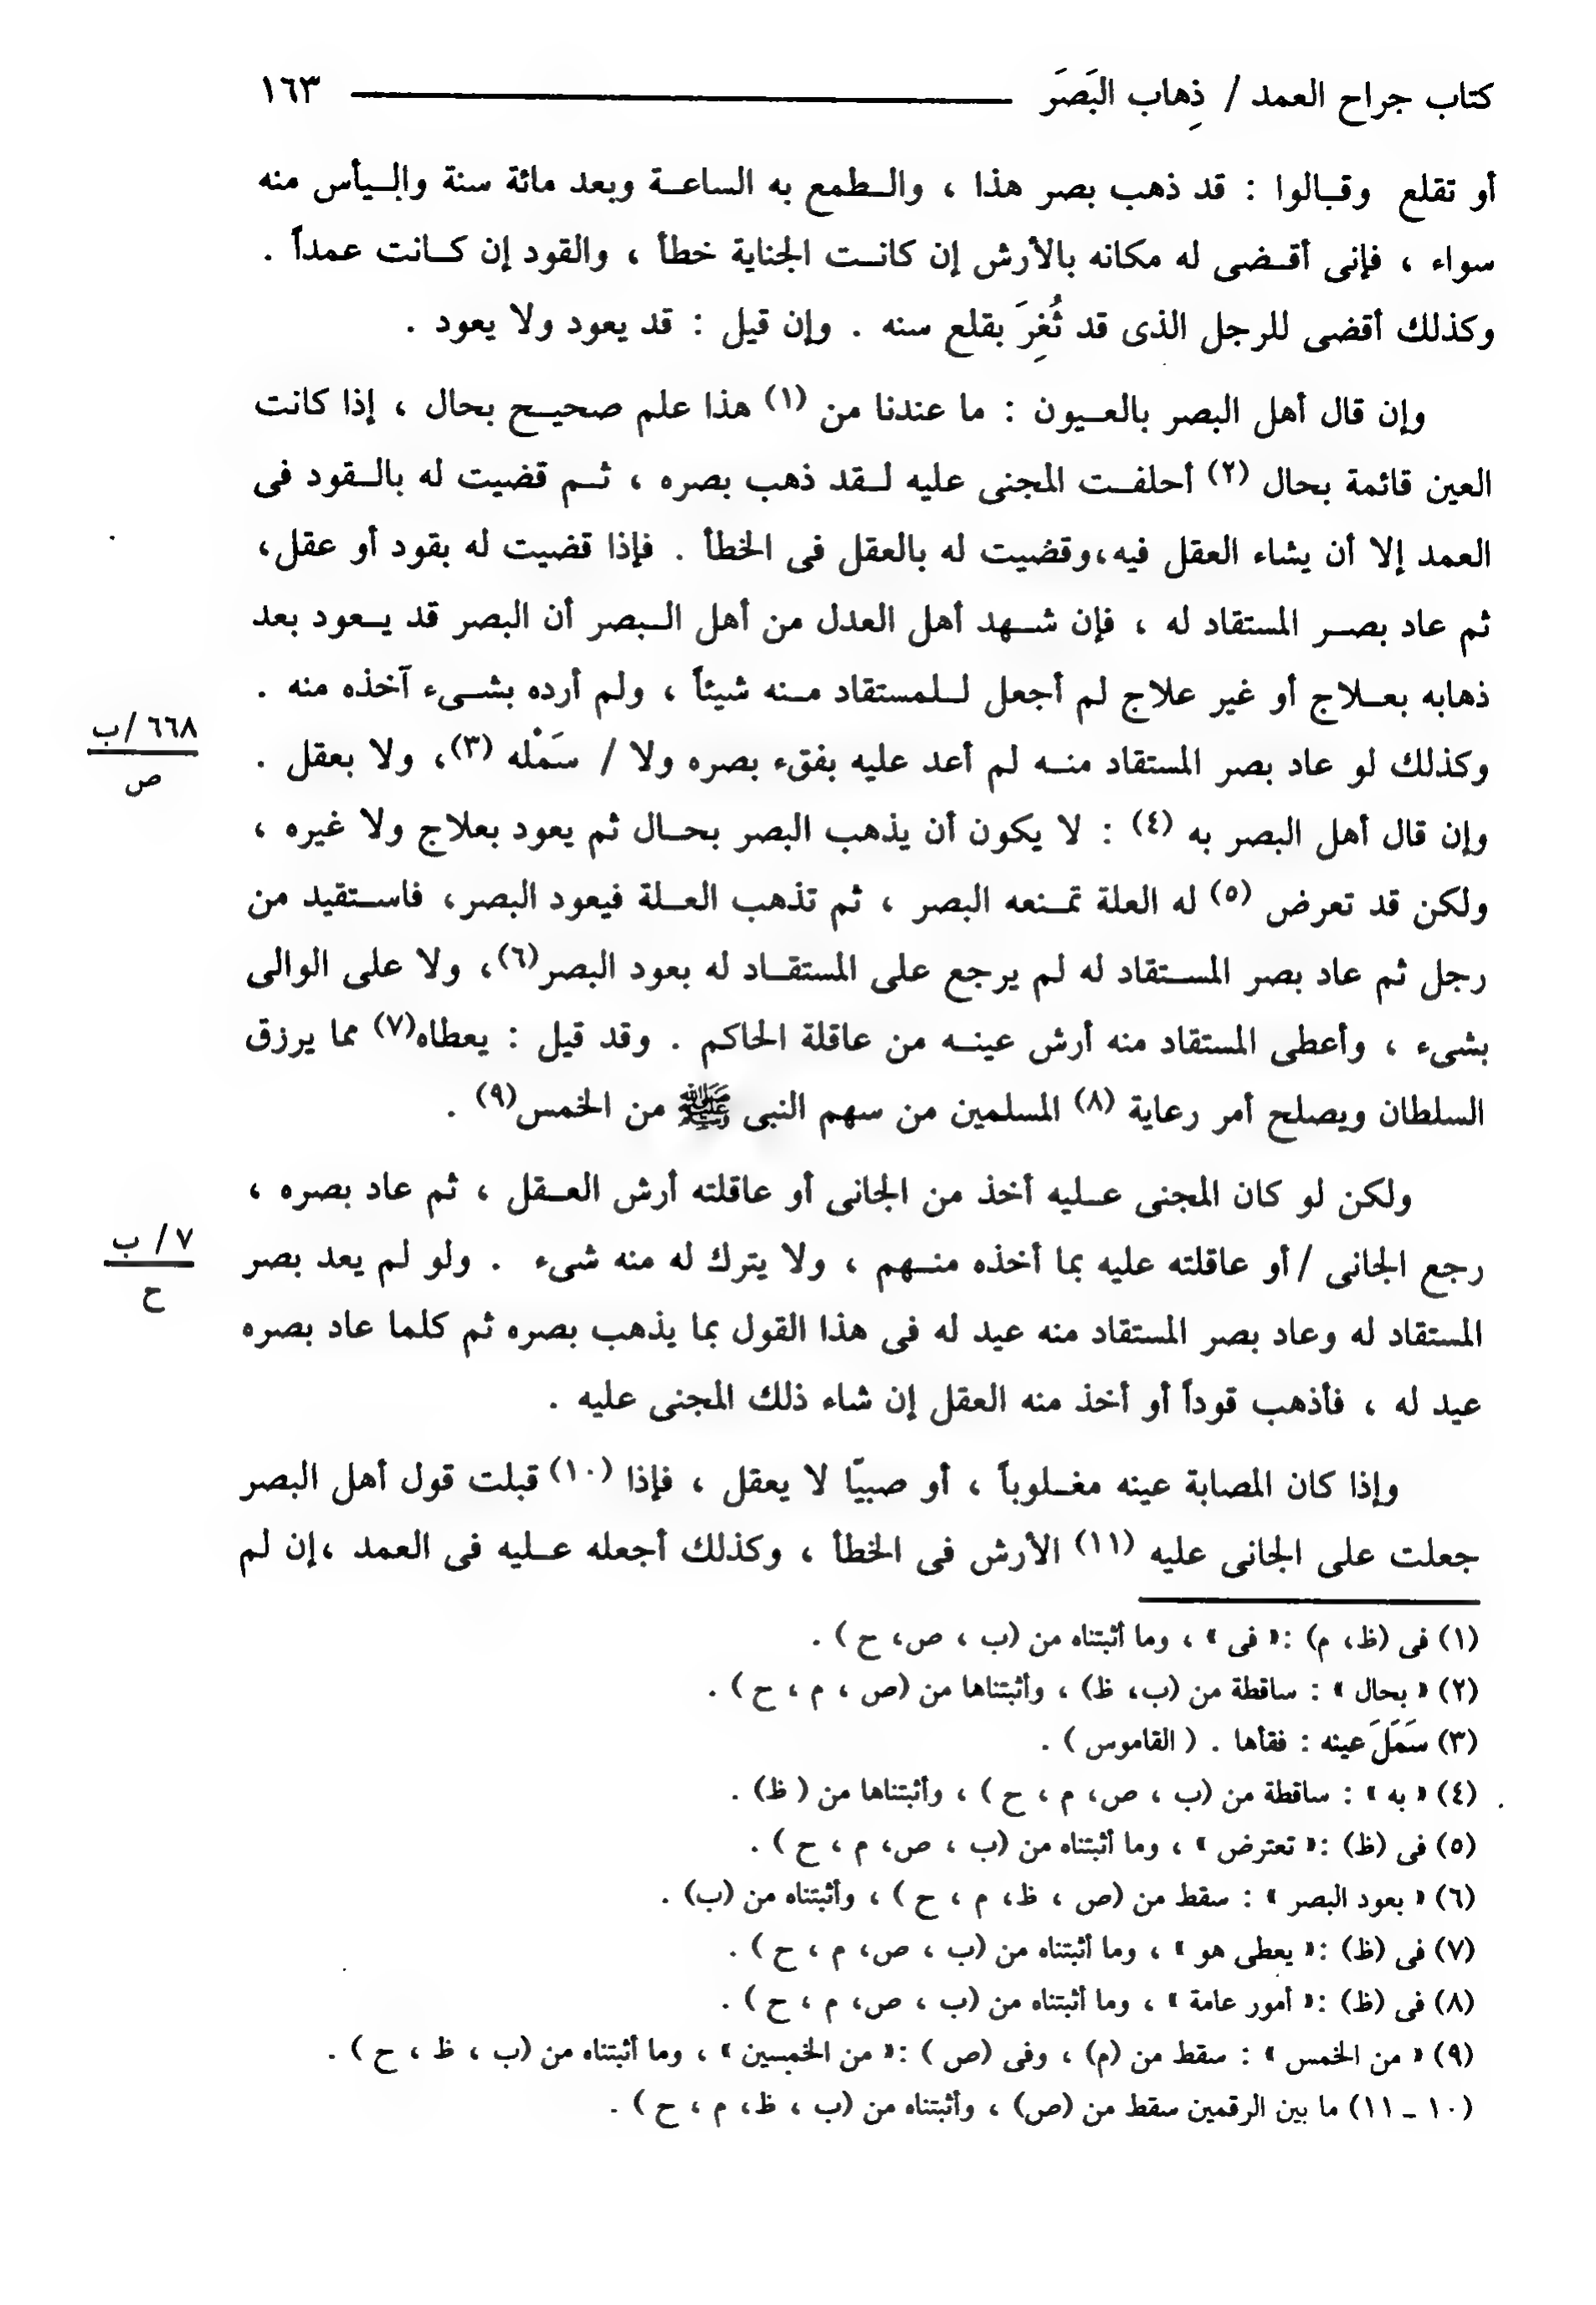 كتاب جراح العمد / ذِهاب البَصَرَ ١٦٣
أو تقلع وقالوا : قد ذهب بصر هذا ، والطمع به الساعة وبعد مائة سنة واليأس منه
سواء ، فإنى أقضى له مكانه بالأرش إن كانت الجناية خطأ ، والقود إن كانت عمداً .
وكذلك أقضى للرجل الذى قد ثُغِرَ بقلع سنه . وإن قيل : قد يعود ولا يعود .
وإن قال أهل البصر بالعيون : ما عندنا من (١) هذا علم صحيح بحال ، إذا كانت
العين قائمة بحال (٢) أحلفت المجنى عليه لقد ذهب بصره ، ثم قضيت له بالقود فى
العمد إلا أن يشاء العقل فيه،وقضيت له بالعقل فى الخطأ . فإذا قضيت له بقود أو عقل،
ثم عاد بصر المستقاد له ، فإن شهد أهل العدل من أهل البصر أن البصر قد يعود بعد
ذهابه بعلاج أو غير علاج لم أجعل للمستقاد منه شيئاً ، ولم أرده بشىء آخذه منه .
وكذلك لو عاد بصر المستقاد منه لم أعد عليه بفقء بصره ولا / سَمْله (٣)، ولا بعقل .
٦٦٨ /ب
ص
وإن قال أهل البصر به (٤) : لا يكون أن يذهب البصر بحال ثم يعود بعلاج ولا غيره ،
ولكن قد تعرض (٥) له العلة تمنعه البصر ، ثم تذهب العلة فيعود البصر، فاستقيد من
رجل ثم عاد بصر المستقاد له لم يرجع على المستقاد له بعود البصر(٦)، ولا على الوالى
بشىء ، وأعطى المستقاد منه أرش عينه من عاقلة الحاكم . وقد قيل : يعطاه(٧) مما يرزق
السلطان ويصلح أمر رعاية (٨) المسلمين من سهم النبى ﷺ من الخمس(٩) .
ولكن لو كان المجنى عليه أخذ من الجانى أو عاقلته أرش العقل ، ثم عاد بصره ،
رجع الجانى /أو عاقلته عليه بما أخذه منهم ، ولا يترك له منه شىء . ولو لم يعد بصر
٧/ ب
ح
المستقاد له وعاد بصر المستقاد منه عيد له فى هذا القول بما يذهب بصره ثم كلما عاد بصره
عيد له ، فأذهب قوداً أو أخذ منه العقل إن شاء ذلك المجنى عليه .
وإذا كان المصابة عينه مغلوباً ، أو صبيّا لا يعقل ، فإذا (١٠) قبلت قول أهل البصر
جعلت على الجانى عليه (١١) الأرش فى الخطأ ، وكذلك أجعله عليه فى العمد ،إن لم
(١) فى (ظ، م) :« فى » ، وما أثبتناه من (ب ، ص، ح ) .
(٢) « بحال » : ساقطة من (ب، ظ) ، وأثبتناها من (ص ، م ، ح ) .
(٣) سَمَلَ عينه : فقأها . ( القاموس ) .
(٤) « به » : ساقطة من (ب ، ص، م ، ح ) ، وأثبتناها من ( ظ) .
(٥) فى (ظ) :« تعترض » ، وما أثبتناه من (ب ، ص، م ، ح ) .
(٦) « بعود البصر » : سقط من (ص ، ظ، م ، ح ) ، وأثبتناه من (ب) .
(٧) فى (ظ) :« يعطى هو » ، وما أثبتناه من (ب ، ص، م ، ح ) .
(٨) فى (ظ) :« أمور عامة » ، وما أثبتناه من (ب ، ص، م ، ح ) .
(٩) « من الخمس » : سقط من (م) ، وفى (ص ) :« من الخمسين » ، وما أثبتناه من (ب ، ظ ، ح ) .
(١٠ ـ ١١) ما بين الرقمين سقط من (ص) ، وأثبتناه من (ب ، ظ، م ، ح ) .